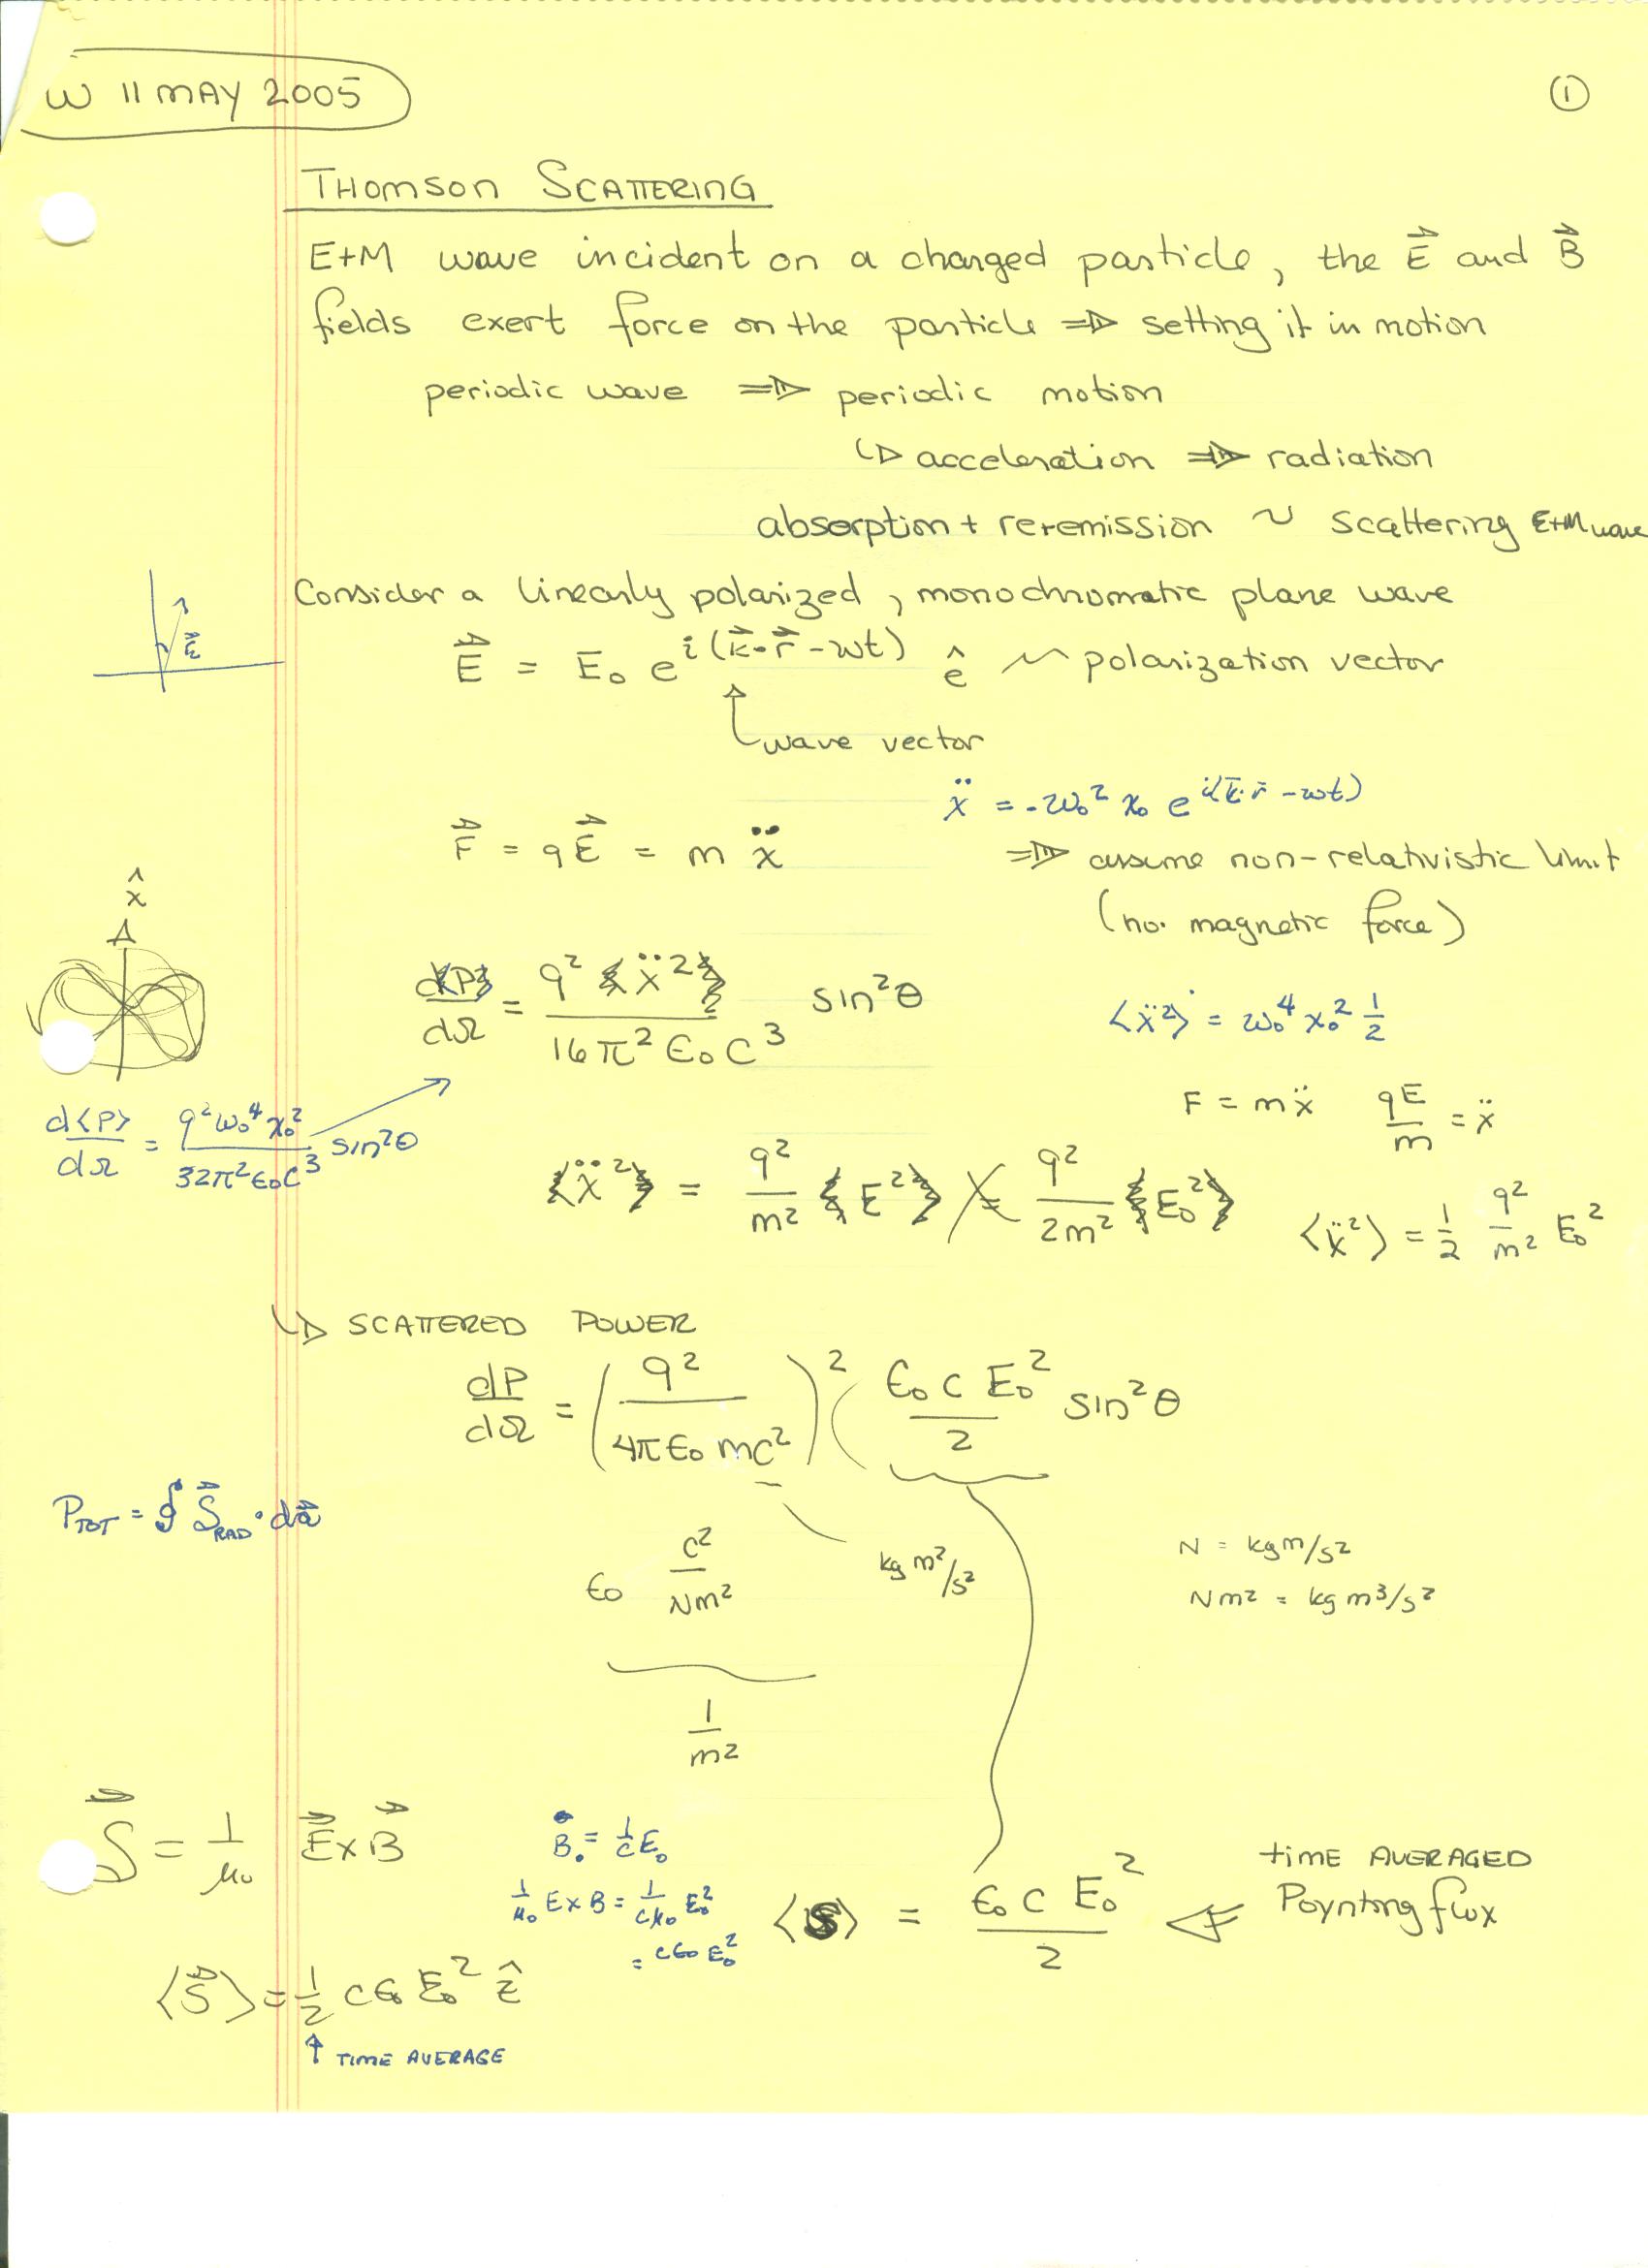 W 11 MAY 2005
①
THOMSON SCATTERING
E+M wave incident on a charged particle, the E⃗ and B⃗
fields exert force on the particle ⇒ setting it in motion
periodic wave ⇒ periodic motion
↳ acceleration ⇒ radiation
absorption + re-emission ~ scattering E+M wave
Consider a linearly polarized, monochromatic plane wave
E⃗
E⃗ = E₀ e^{i(k⃗·r⃗ - ωt)} ê ~ polarization vector
↑ wave vector
ẍ = -ω₀² x₀ e^{i(k̄·r̄ - ωt)}
F⃗ = qE⃗ = m ẍ
⇒ assume non-relativistic limit
(no magnetic force)
x̂
dP/dΩ = q² ẍ² / 16π² ε₀ c³ sin²θ
⟨ẍ²⟩ = ω₀⁴ x₀² 1/2
F = mẍ qE/m = ẍ
d⟨P⟩/dΩ = q² ω₀⁴ x₀² / 32π² ε₀ c³ sin²θ
ẍ² = q²/m² E² = q²/2m² E₀²
⟨ẍ²⟩ = 1/2 q²/m² E₀²
↳ SCATTERED POWER
dP/dΩ = (q² / 4π ε₀ mc²)² ( ε₀ c E₀² / 2 sin²θ
P_TOT = ∮ S⃗_RAD · da⃗
ε₀ C²/Nm²
kg m²/s²
N = kg m/s²
Nm² = kg m³/s²
1/m²
S⃗ = 1/μ₀ E⃗ x B⃗
B₀ = 1/c E₀
1/μ₀ E x B = 1/cμ₀ E₀²
= cε₀ E₀²
⟨S⟩ = ε₀ c E₀² / 2 ⇐ TIME AVERAGED
Poynting flux
⟨S⃗⟩ = 1/2 cε₀ E₀² ẑ
↑ TIME AVERAGE